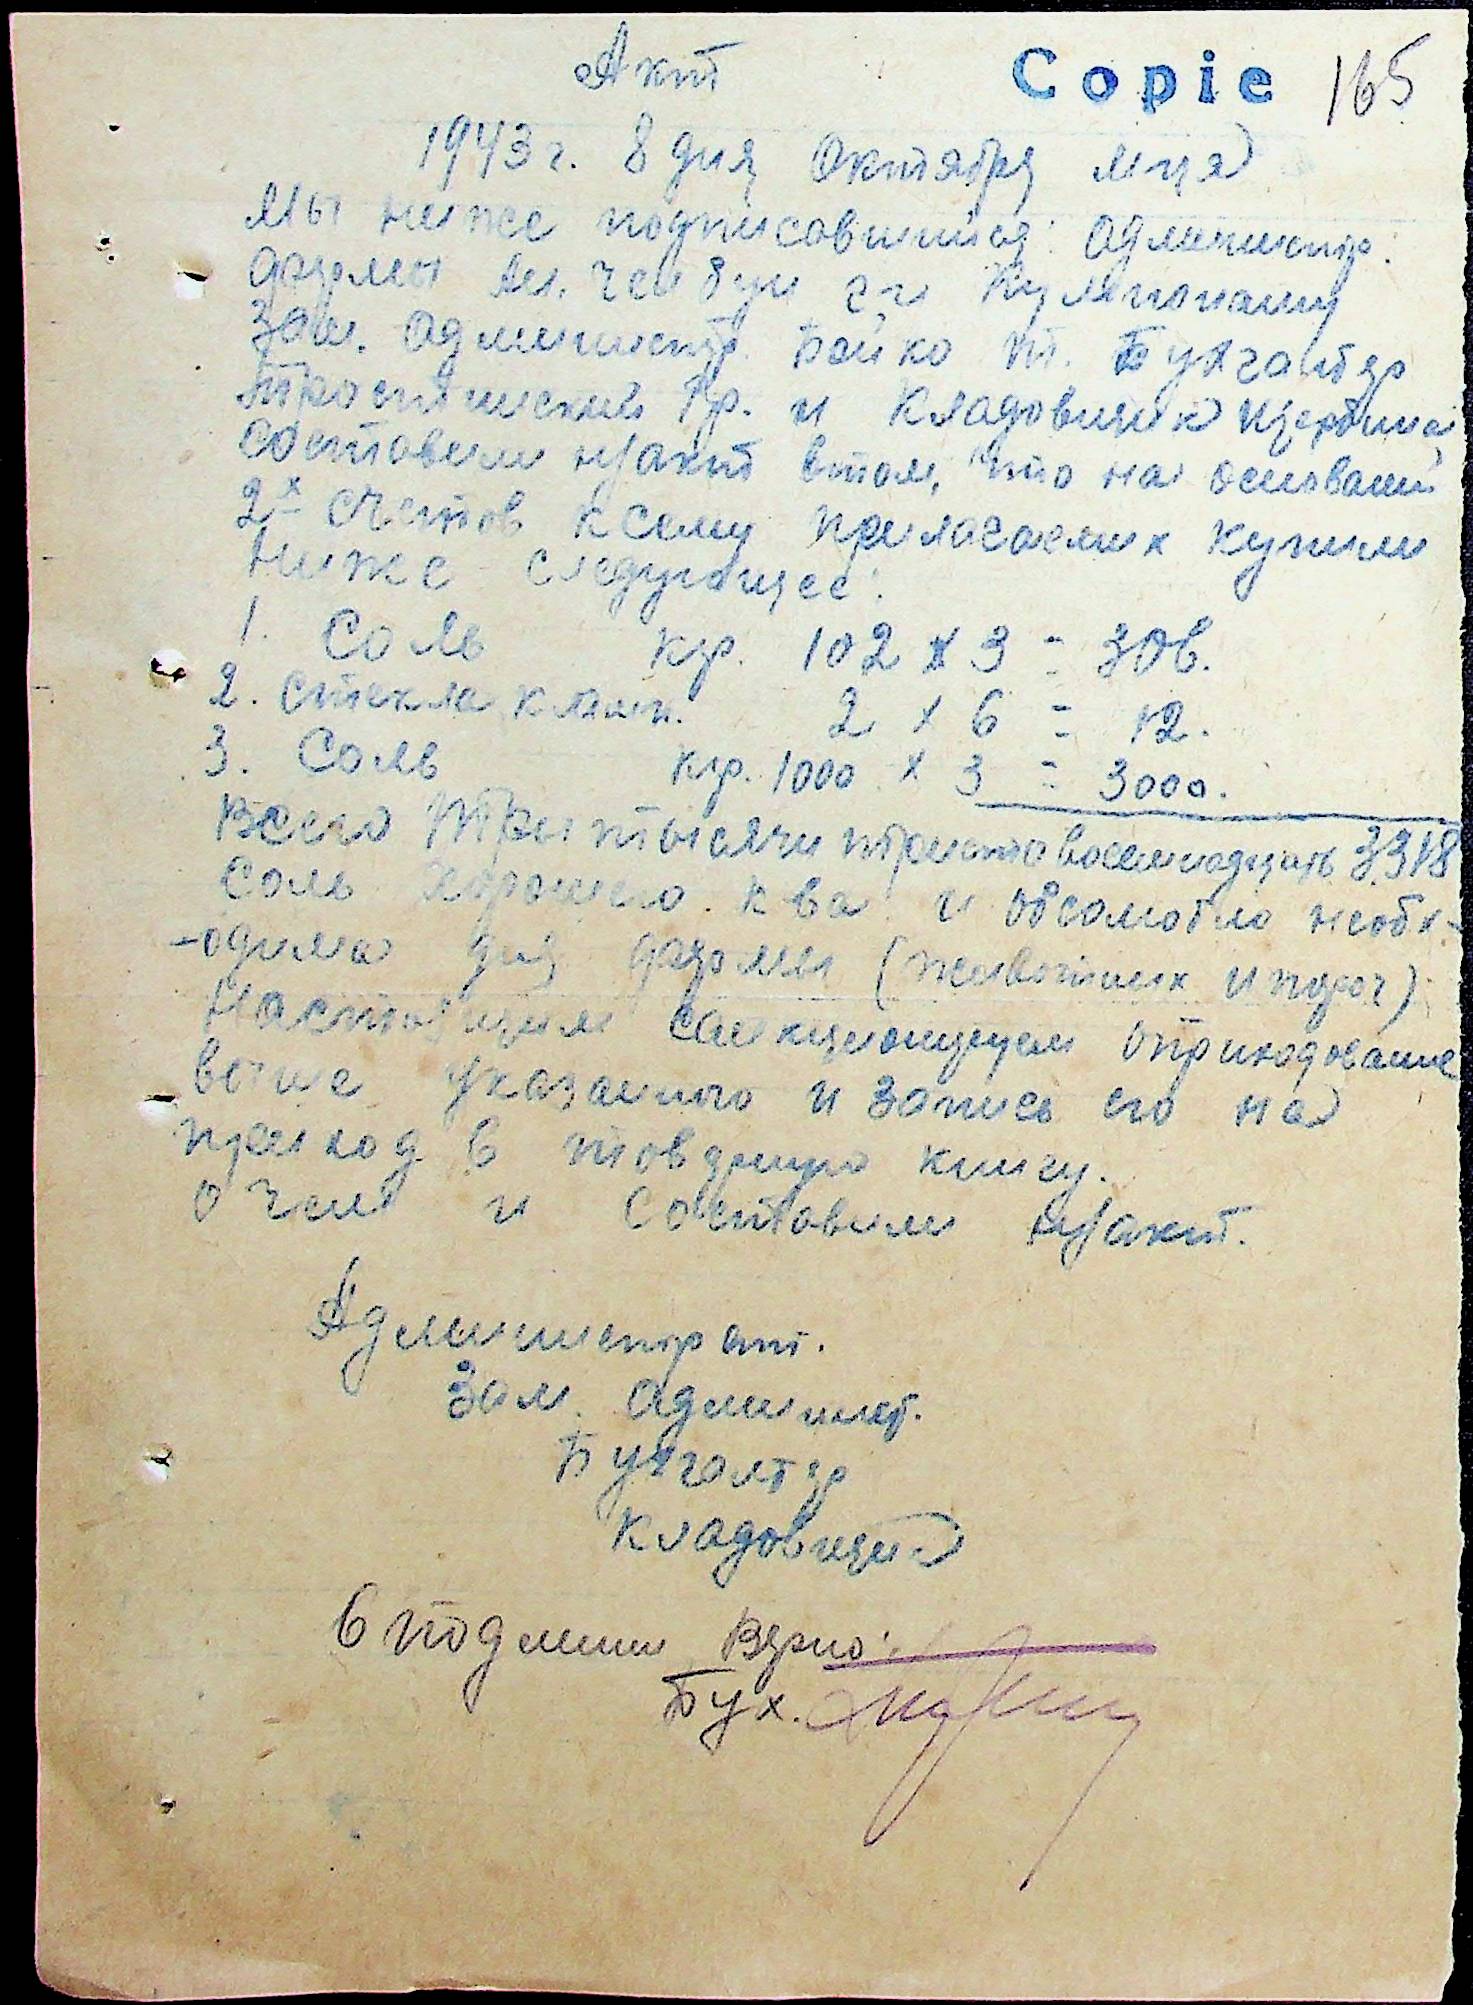 Акт
Copie 165
1943 г. 8 дня Октября м-ця
Мы ниже подписовшийся: Администр.
фермы
Зам. Администр. Бойко Т. Бухгалтер
Тростинский Гр. и Кладовщик
составили н/акт втом, что на основании
2х счетов ксему прилагаемих купили
ниже следующее:
1. Соль кгр. 102 х 3 = 306.
2. Стекла к ламп. 2 х 6 = 12.
3. Соль кгр. 1000 х 3 = 3000.
Всего Три тысячи триста восемнадцать 3318
Соль хорошего к-ва и обсолютно необх-
-одима для фермы (животных и проч)
Настоящим санкционируем оприходование
вание указанного и запись его на
приход в товарную книгу.
О чем и составили н/акт.
Администрат.
Зам. Админист.
Бухгалтер
Кладовщик
С подлин. Верно:
Бух.